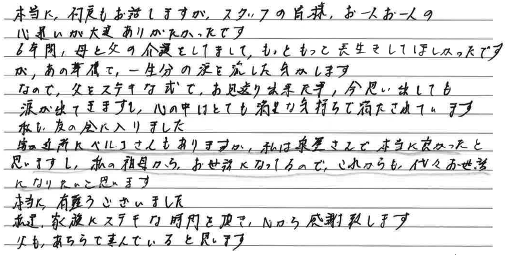 本当に、何度もお話しますが、スタッフの皆様、お一人お一人の
心遣いが大変ありがたかったです
6年間、母と父の介護をしてまして、もっともっと長生きしてほしかったです
が、あの葬儀で、一生分の涙を流した気がします
なので、父をステキな式で、お見送り出来た事、今思い出しても
涙が出てきますし、心の中はとても満足な気持ちで満たされています
私も友の会に入りました
近所にベルコさんもありますが、私は泉屋さんで本当に良かったと
思いますし、私の祖母から、お世話になってるので、これからも、代々お世話
になりたいと思います
本当に有難うございました
私達、家族にステキな時間を頂き、心から感謝致します
父も、あちらで喜んでいると思います